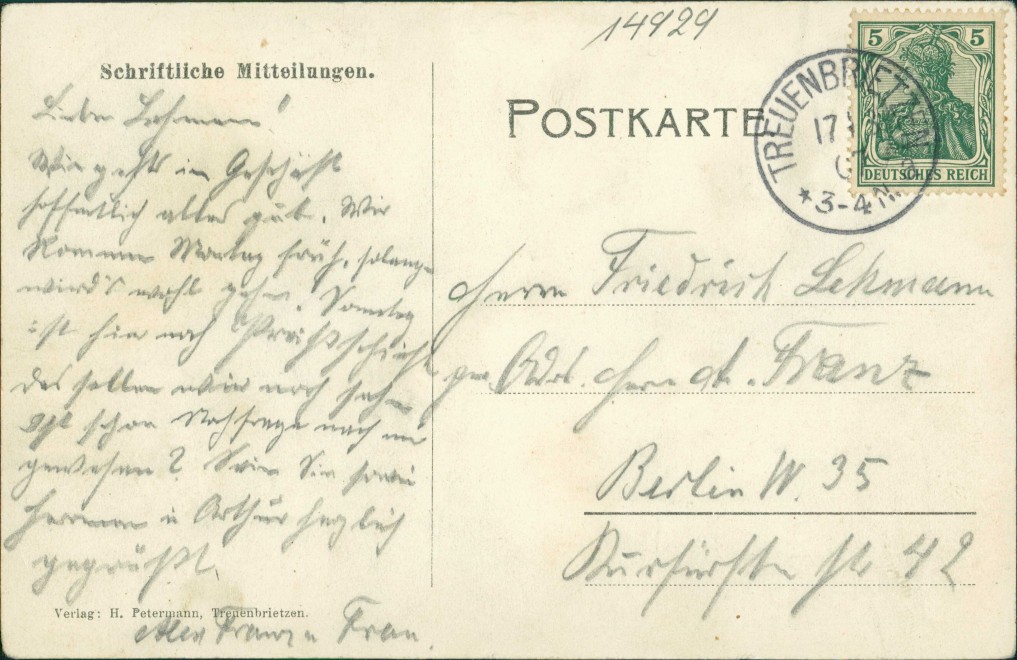 14929
Schriftliche Mitteilungen.
POSTKARTE
TREUENBRIETZEN
17
* 3-4 N.
5 5
DEUTSCHES REICH
Lieber Lehmann!
Wie geht's im Geschäft
hoffentlich alles gut. Wir
kommen Montag früh, solange
wird's wohl gehen. Sonntag
ist hier noch
das sollen wir noch sehen
Ist schon Nachfrage nach mir
gewesen? Seien Sie sowie
Herrmann u Arthur herzlich
gegrüßt
Alex Franz u Frau.
Herrn Friedrich Lehmann
per Adr. Herrn A. Franz
Berlin W. 35
Kurfürsten str 42
Verlag: H. Petermann, Treuenbrietzen.